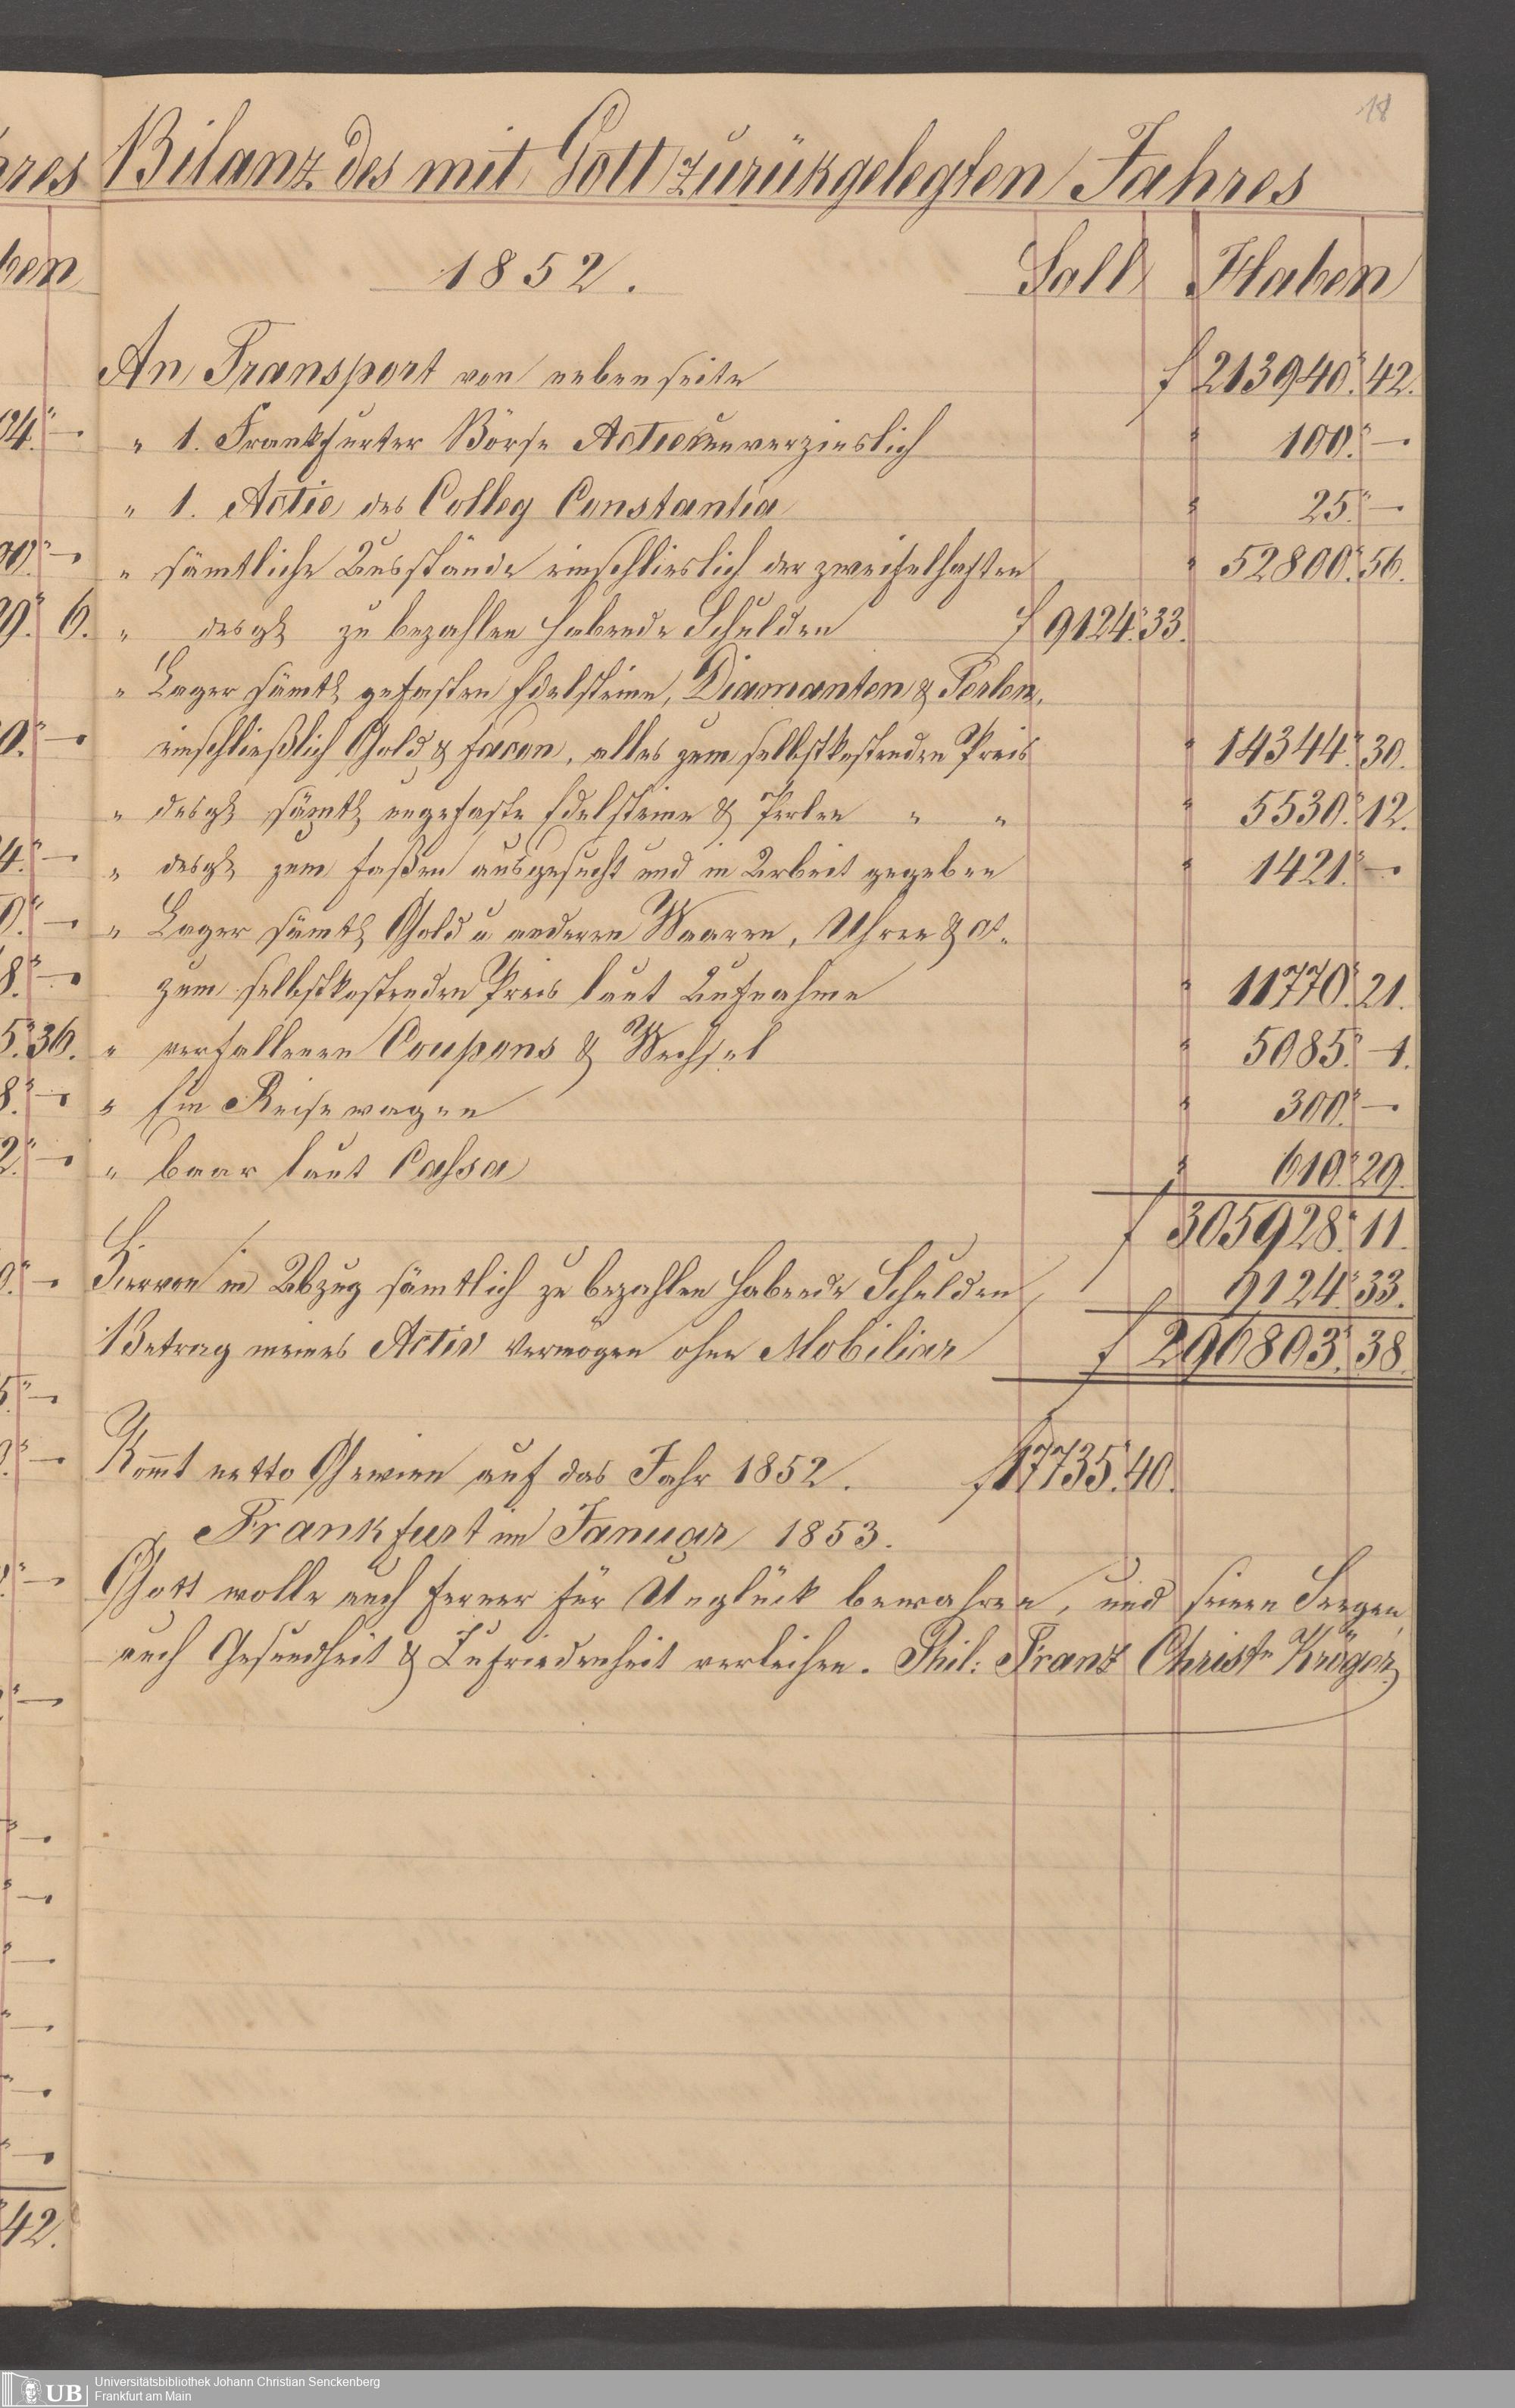 18
Bilanz des mit Gott zurükgelegten Jahres
1852. Soll Haben
An Transport von nebenseite f 213940." 42.
" 1. Frankfurter Börse Actie unverzinslich " 100." —
" 1. Actie des Colleg Constantia " 25." —
" sämtliche Ausstände einschlieslich der zweifelhaften " 52800." 56.
" desgl zu bezahlen habende Schulden f 9124." 33.
" Lager sämtl gefasten Edelsteine, Diamanten & Perlen,
einschließlich Gold & facon, alles zum selbstkostenden Preis " 14344." 30.
" desgl sämtl ungefaste Edelsteine & Perlen " " " 5530." 12.
" desgl zum faßen ausgesucht und in Arbeit gegeben " 1421." —
" Lager sämtl Gold u anderen Waaren, Uhren & ct.
zum selbstkostenden Preis laut Aufnahme " 11770." 21.
" verfallenen Coupons & Wechsel " 5085." 1.
" Ein Reisewagen " 300." —
" baar laut Cassa " 610." 29.
f 305928." 11.
Hiervon in Abzug sämtlich zu bezahlen habende Schulden 9124." 33.
Betrag meines Activ Vermögen ohne Mobiliar f 296803." 38.
Kommt netto Gewinn auf das Jahr 1852. f 17735." 40.
Frankfurt im Januar 1853.
Gott wolle auch ferner für Unglück bewahren, und seinen Seegen,
auch Gesundheit & Zufriedenheit verleihen. Phil: Franz Christn Kröger.
res
ben
24." —
00." —
29." 6.
0." —
4." —
0." —
8." —
5." 36.
8." —
2." —
0." —
5." —
42.
UB
Universitätsbibliothek Johann Christian Senckenberg
Frankfurt am Main